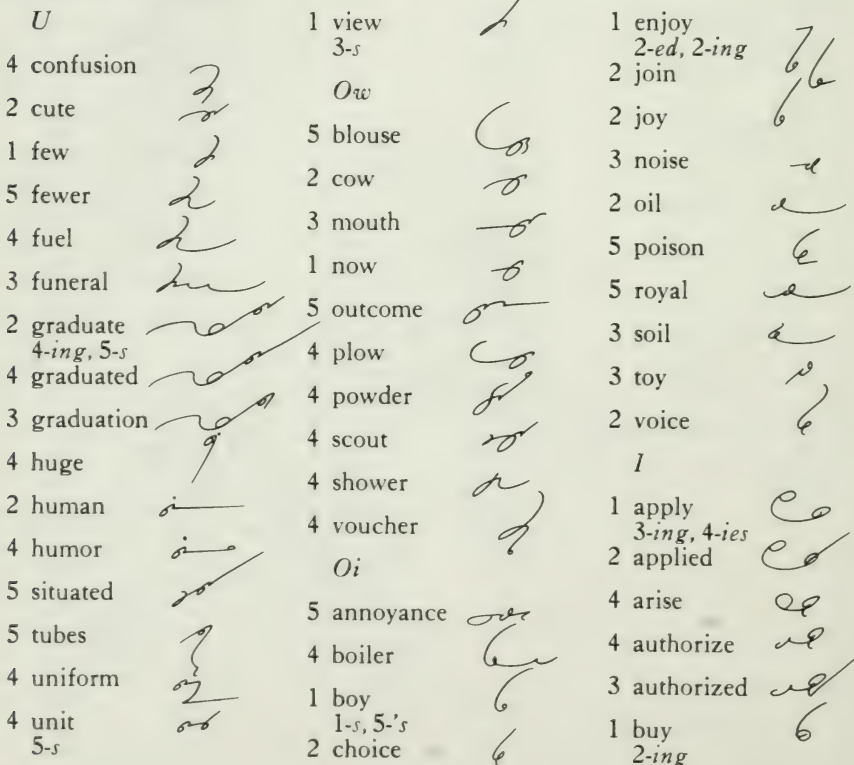 U
4 confusion
2 cute
1 few
5 fewer
4 fuel
3 funeral
2 graduate
4-ing, 5-s
4 graduated
3 graduation
4 huge
2 human
4 humor
5 situated
5 tubes
4 uniform
4 unit
5-s
1 view
3-s
Ow
5 blouse
2 cow
3 mouth
1 now
5 outcome
4 plow
4 powder
4 scout
4 shower
4 voucher
Oi
5 annoyance
4 boiler
1 boy
1-s, 5-'s
2 choice
1 enjoy
2-ed, 2-ing
2 join
2 joy
3 noise
2 oil
5 poison
5 royal
3 soil
3 toy
2 voice
I
1 apply
3-ing, 4-ies
2 applied
4 arise
4 authorize
3 authorized
1 buy
2-ing